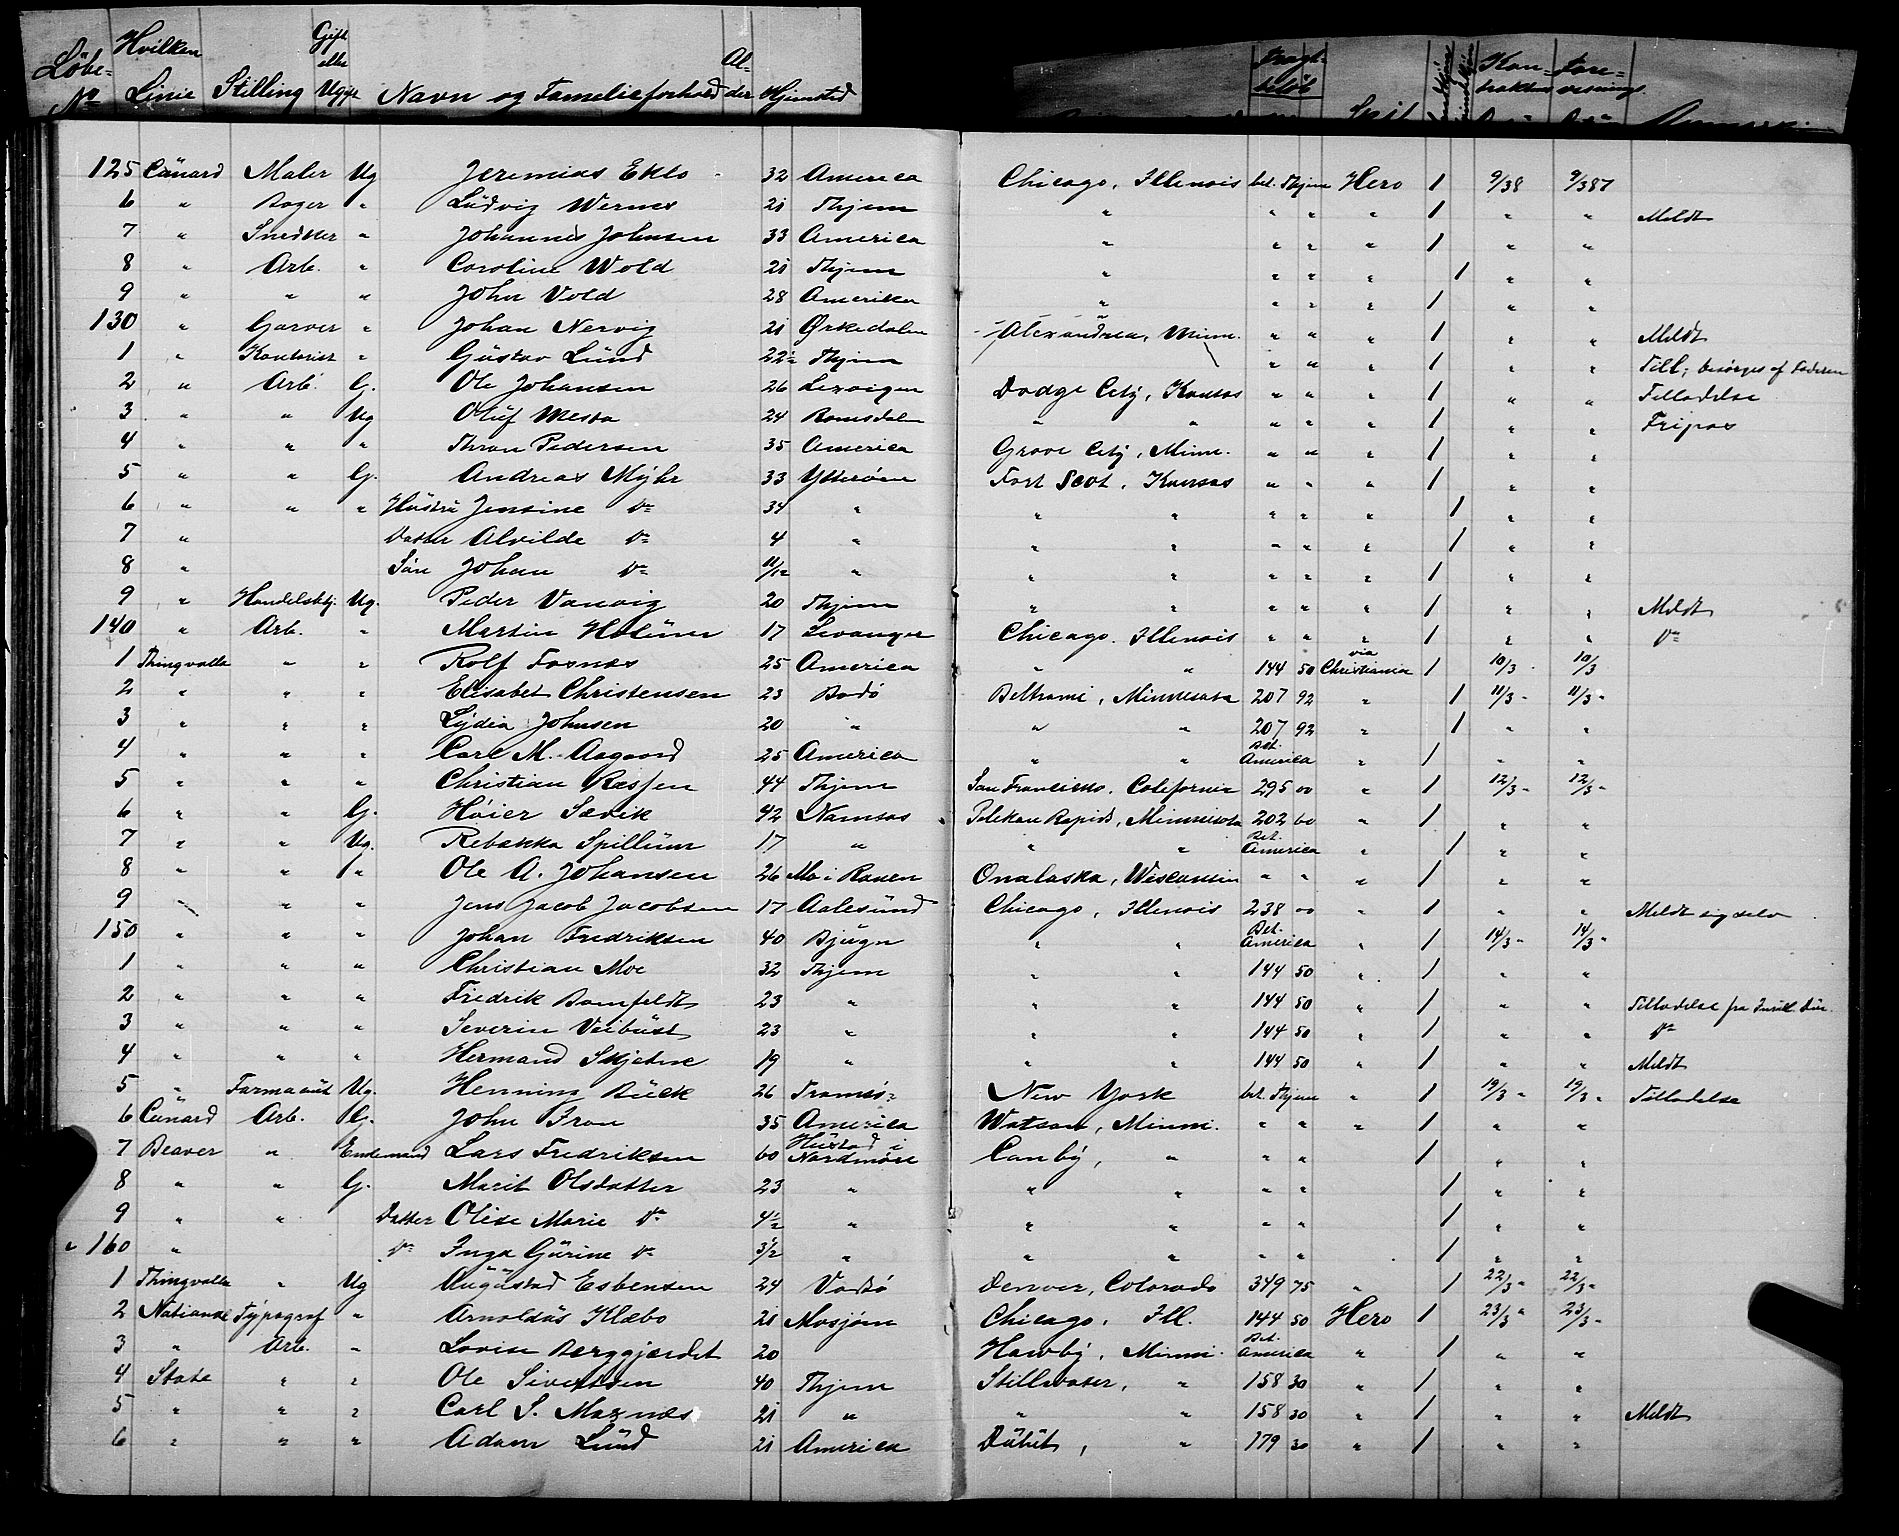 Löbe- No Hvilken Linie Stilling Gift eller Ugift Navn og Familieforhold Alder Hjemsted Fragtbeløb Skib Kontraktens Forevisnings
125 Cünard Maler Ug Jeremias Eklo 32 America Chicago, Illenois bet. Thjem Hero 1 9/38 9/387
6 " Bager " Lüdvig Wernes 21 Thjem " " " " 1 " " Meldt
7 " Snedker " Johannes Johnsen 33 America " " " " 1 " "
8 " Arb. " Caroline Wold 21 Thjem " " " " 1 " "
9 " " " John Vold 28 Amerika " " " " 1 " "
130 " Garver " Johan Nervig 21 Ørkedalen Alexandrea, Minn. " " " 1 " " Meldt
1 " Kontorist " Güstav Lünd 22½ Thjem " " " 1 " " Till; besörges af Pedersen
2 " Arb. G. Ole Johansen 26 Lexvigen Dodge City, Kansas " " " 1 " " Tilladelse
3 " " Ug Olüf Mesta 24 Romsdalen " " " " " 1 " " Fripas
4 " " " Thron Pedersen 35 America Grove City, Minn. " " " 1 " "
5 " " G. Andreas Myhr 33 Ytterøen Fort Scot, Kansas " " " 1 " "
6 " " " Hüstrü Jensine Do 34 " " " " " " 1 " "
7 " Datter Alvilde Do 4 " " " " " " 1 " "
8 " Søn Johan Do 11/12 " " " " " " 1 " "
9 " Handelsbtj. Ug. Peder Vanvig 20 Thjem " " " " " 1 " " Meldt
140 " Arb. " Martin Holünn 17 Levanger Chicago. Illenois " " " 1 " " Do
1 Thingvalla " " Rolf Fosnæs 25 America " " 144 50 via Christiania 1 10/3 10/3
2 " " " Elisabet Christensen 23 Bodö Beltrami, Minnesota 207 92 " 1 11/3 " 11/3 "
3 " " " Lydia Johnsen 20 " " " 207 92 " 1 " "
4 " " " Carl M. Aagaard 25 America " " Bet. America " 1 " "
5 " " " Christian Ræsfen 44 Thjem San Francisko, California 295 00 " 1 12/3 " 12/3 "
6 " " G. Høier Sævik 42 Namsos Pelekan Rapids, Minnesota 202 60 " 1 " "
7 " " Ug. Rebækka Spillüm 17 " " " Bet. America " 1 " "
8 " " " Ole A. Johansen 26 Mo i Ranen Onalaska, Wisconsin " " " 1 " "
9 " " " Jens Jacob Jacobsen 17 Aalesünd Chicago, Illenois 238 00 " 1 " " Meldt sig selv
150 " " " Johan Fredriksen 40 Bjügn " " Bet. America " 1 14/3 " 14/3 "
1 " " " Christian Moe 32 Thjem " " 144 50 " 1 " "
2 " " " Fredrik Bomfeldt 23 " " " 144 50 " 1 " " Tilladelse fra
3 " " " Severin Veibüst 23 " " " 144 50 " 1 " " Do
4 " " " Hermand Skjetne 19 " " " 144 50 " 1 " " Meldt
5 " Farmaceüt Ug. Henning Bück 26 Tromsö New York bet. Thjem " 1 19/3 " 19/3 " Tilladelse
6 Cünard Arb. G. John Bron 35 America Watson, Minni. " " " 1 " "
7 Beaver " Enkemand Lars Fredriksen 60 Hüstad i Nordmöre Canby, " " " 1 " "
8 " " G. Marit Olsdatter 23 " " " " " 1 " "
9 " " Datter Olise Marie Do 4½ " " " " " 1 " "
160 " Do Inga Gürine Do 3½ " " " " " 1 " "
1 Thingvalla " Ug Aügüstad Esbensen 24 Vadsö Denver, Colorado 349 75 " 1 22/3 " 22/3 "
2 National Typograf " Arnoldüs Klæbo 21 Mosjøen Chicago, Ill. 144 50 Hero 1 23/3 " 23/3 "
3 " Arb. " Lovise Berggjerdet 20 Hawby, Minni. Bet. America " 1 " "
4 State " " Ole Sivertsen 40 Thjem Stillwater, " 158 30 " 1 " "
5 " " " Carl S. Maznæs 21 " " " 158 30 " 1 " " Meldt
6 " " " Adam Lünd 21 America Dülüt, " 179 30 " 1 " "